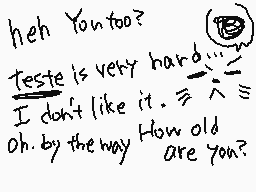 heh You too?
teste is very hard...
I don't like it.
oh. by the way How old
are you?